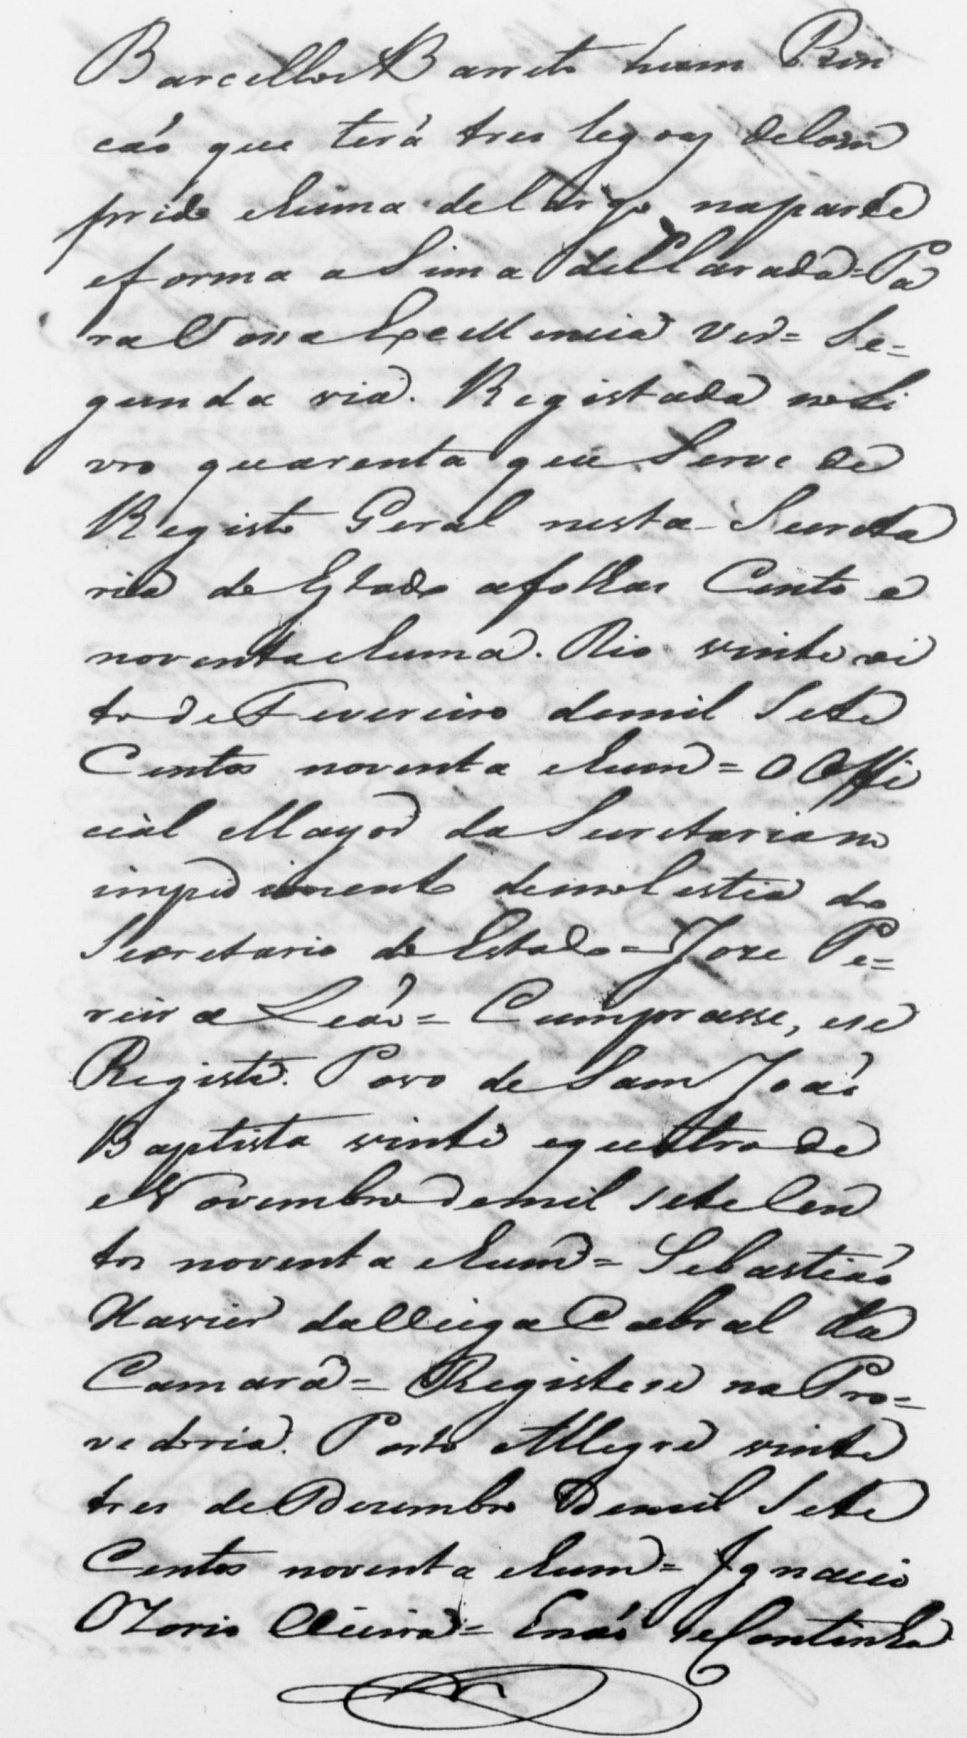 Barcellos Barreto hum Rin
cão que terá tres legoas deCom
prido ehuma deLargo naparte
eforma aSima deClarada = Pa
ra Vossa Excellencia Ver = Se=
gunda via. Registada noLi
vro quarenta que Serve de
Registo Geral nesta Secreta
ria de Estado afolhas Cento e
noventa ehuma. Rio vinte oi
to de Fevereiro demil Sete
Centos noventa ehum = O Offi
cial Mayor da Secretaria no
impedimento demolestia do
Secretario de Estado = Joze Pe=
reira Leão = Cumprasse, ese
Registe. Povo de Sam João
Baptista vinte equatro de
Novembro demil seteCen
tos noventa ehum = Sebastião
Xavier daVeiga Cabral da
Camara = Registese na Pro=
vedoria. Porto Allegre vinte
tres de Dezembro Demil Sete
Centos noventa ehum = Ignacio
Ozorio Vieira = Enão seContinha